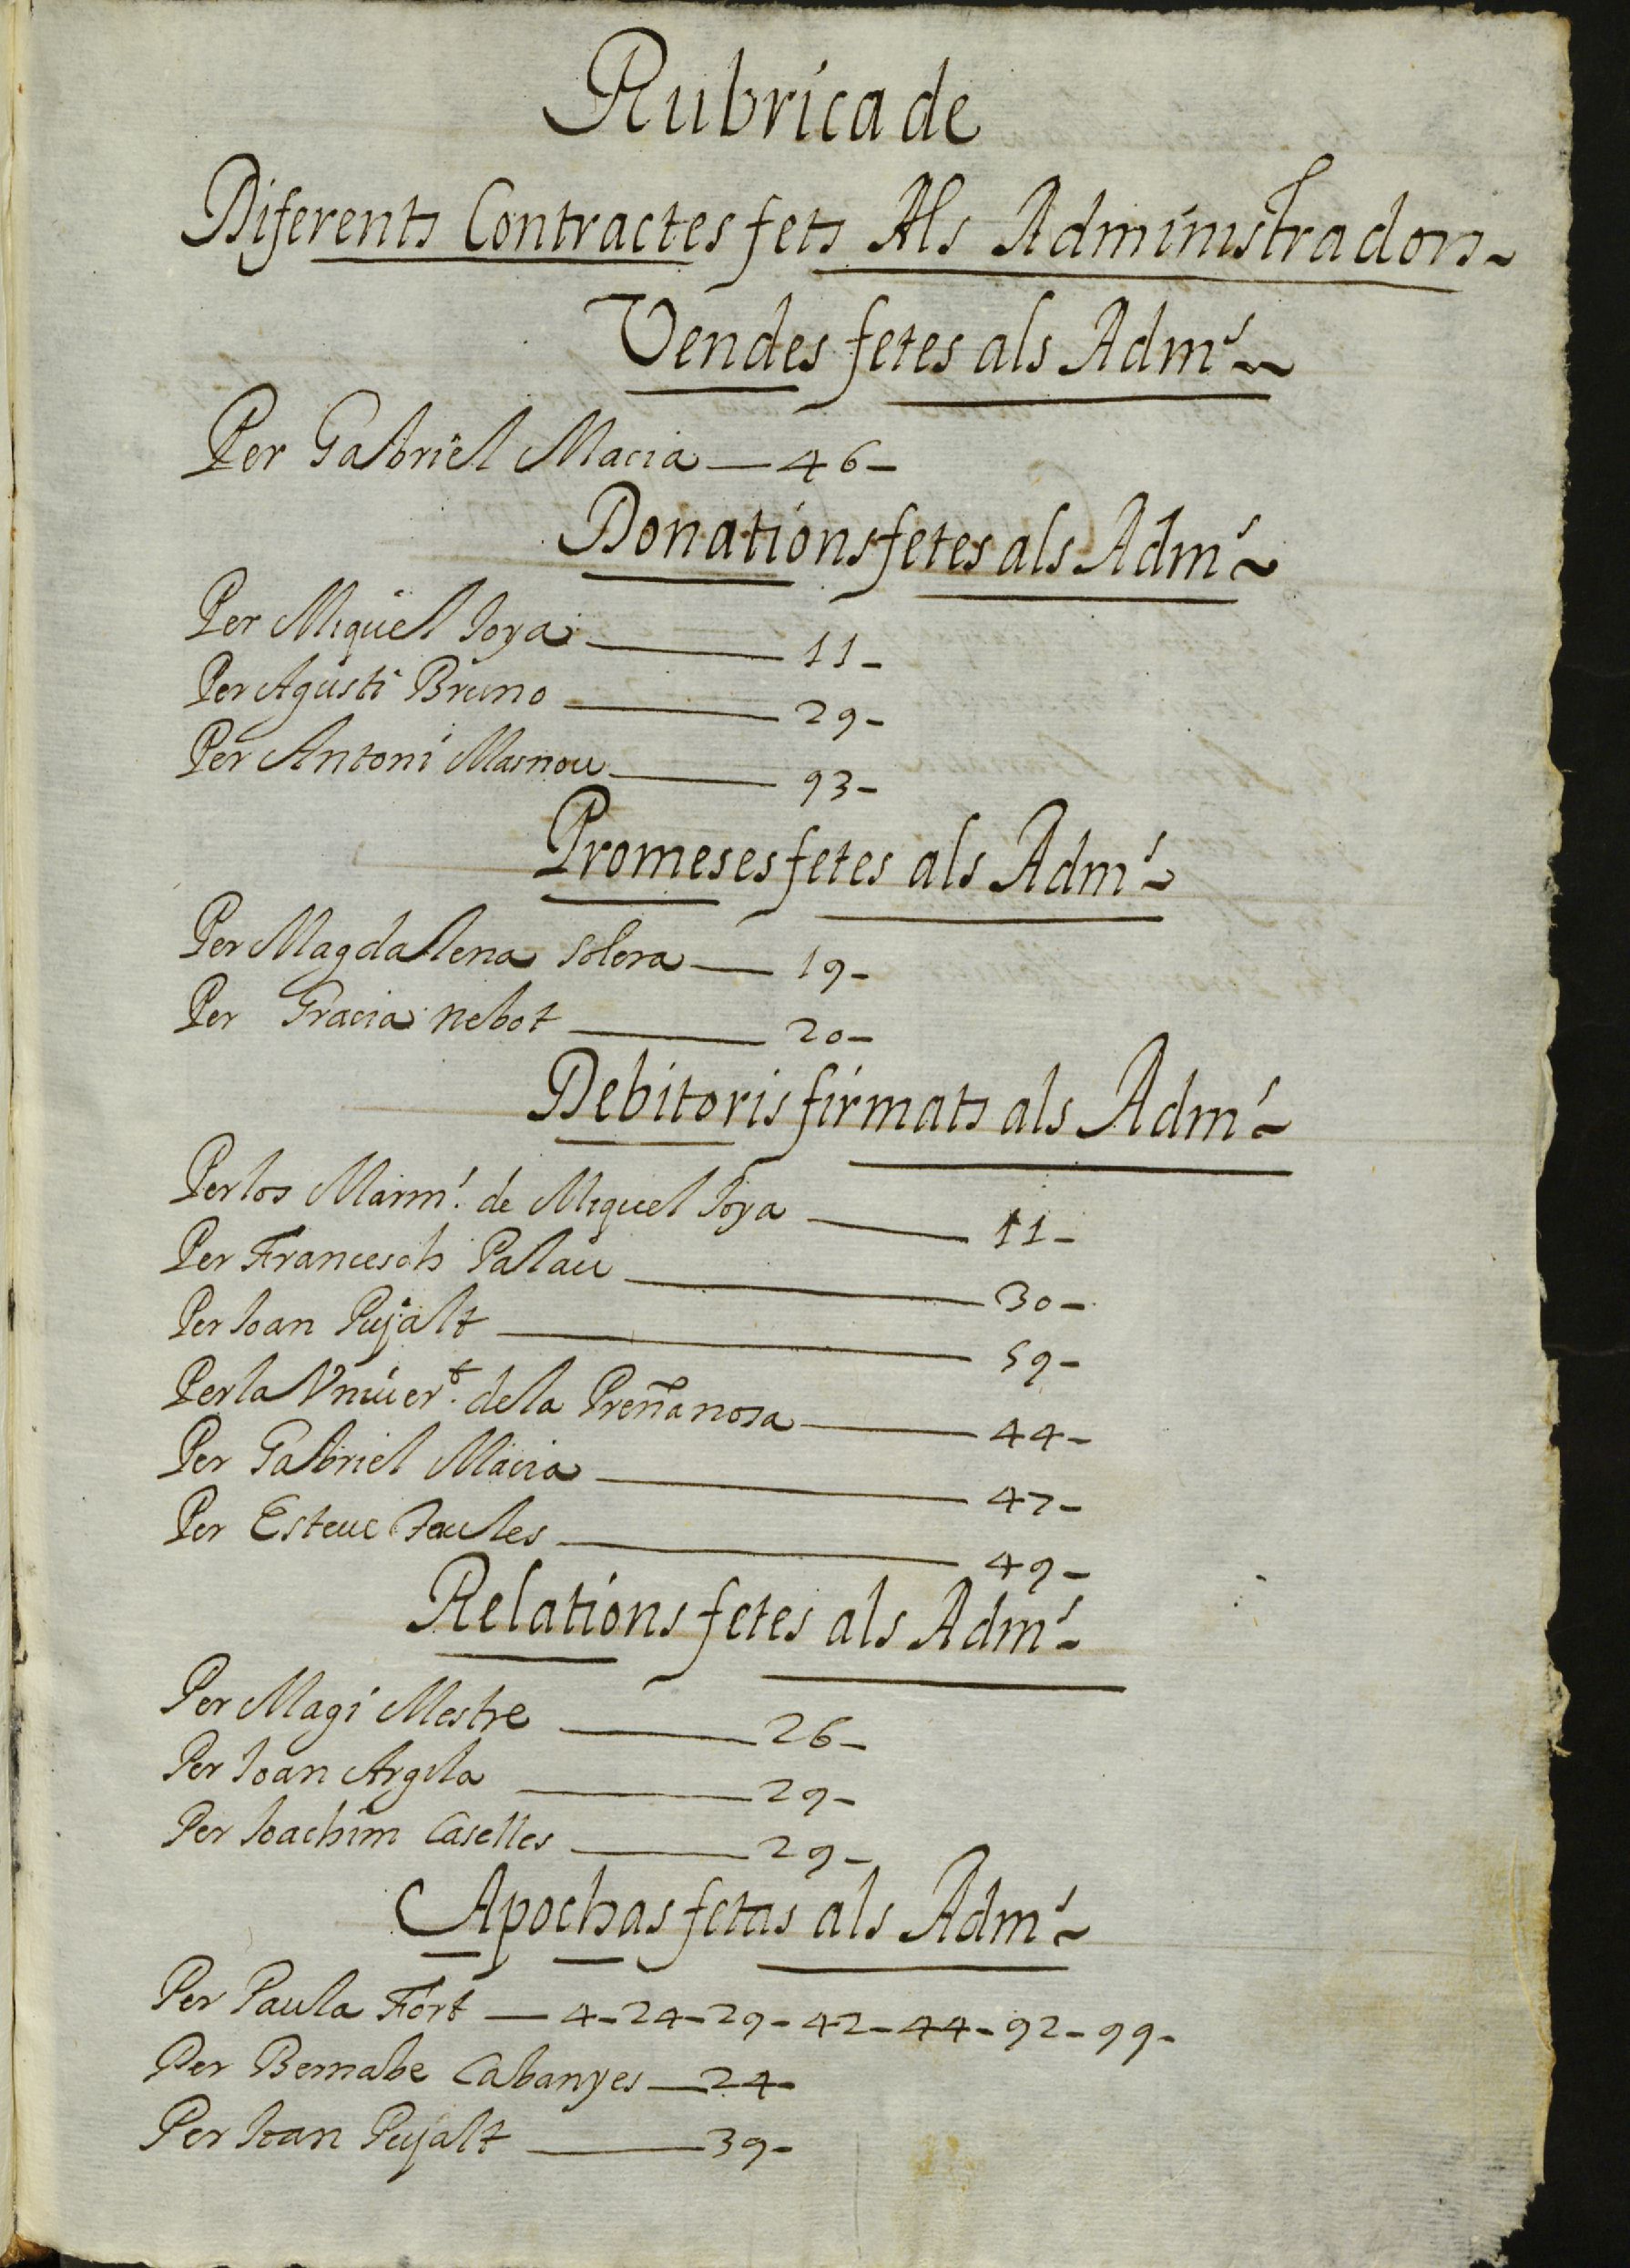 Rubrica de
Diferents Contractes fets Als Administradors
Vendes fetes als Adm.s
Per Gabriel Macia — 46 -
Donations fetes als Adm.s
Per Miquel Joya — 11 -
Per Agusti Bruno — 29 -
Per Antoni Masnou — 93 -
Promeses fetes als Adm.s
Per Magdalena Solera — 19 -
Per Gracia nebot — 20 -
Debitoris firmats als Adm.s
Per los Marm.s de Miquel Joya — 11 -
Per Francesch Palau — 30 -
Per Joan Pujalt — 59 -
Per la Vniuer.t de la Preñanosa — 44 -
Per Gabriel Macia — 47 -
Per Esteue — 49 -
Relations fetes als Adm.s
Per Magi Mestre — 26 -
Per Joan Argila — 29 -
Per Joachim Caselles — 29 -
Apochas fetas als Adm.s
Per Paula Fort — 4 - 24 - 29 - 42 - 44 - 92 - 99 -
Per Bernabe Cabanyes — 24 -
Per Joan Pujalt — 39 -